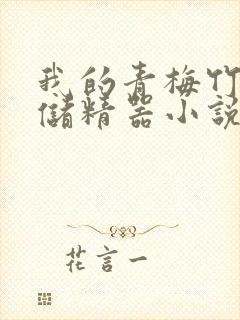 我的青梅竹
儲精器小説
花言一